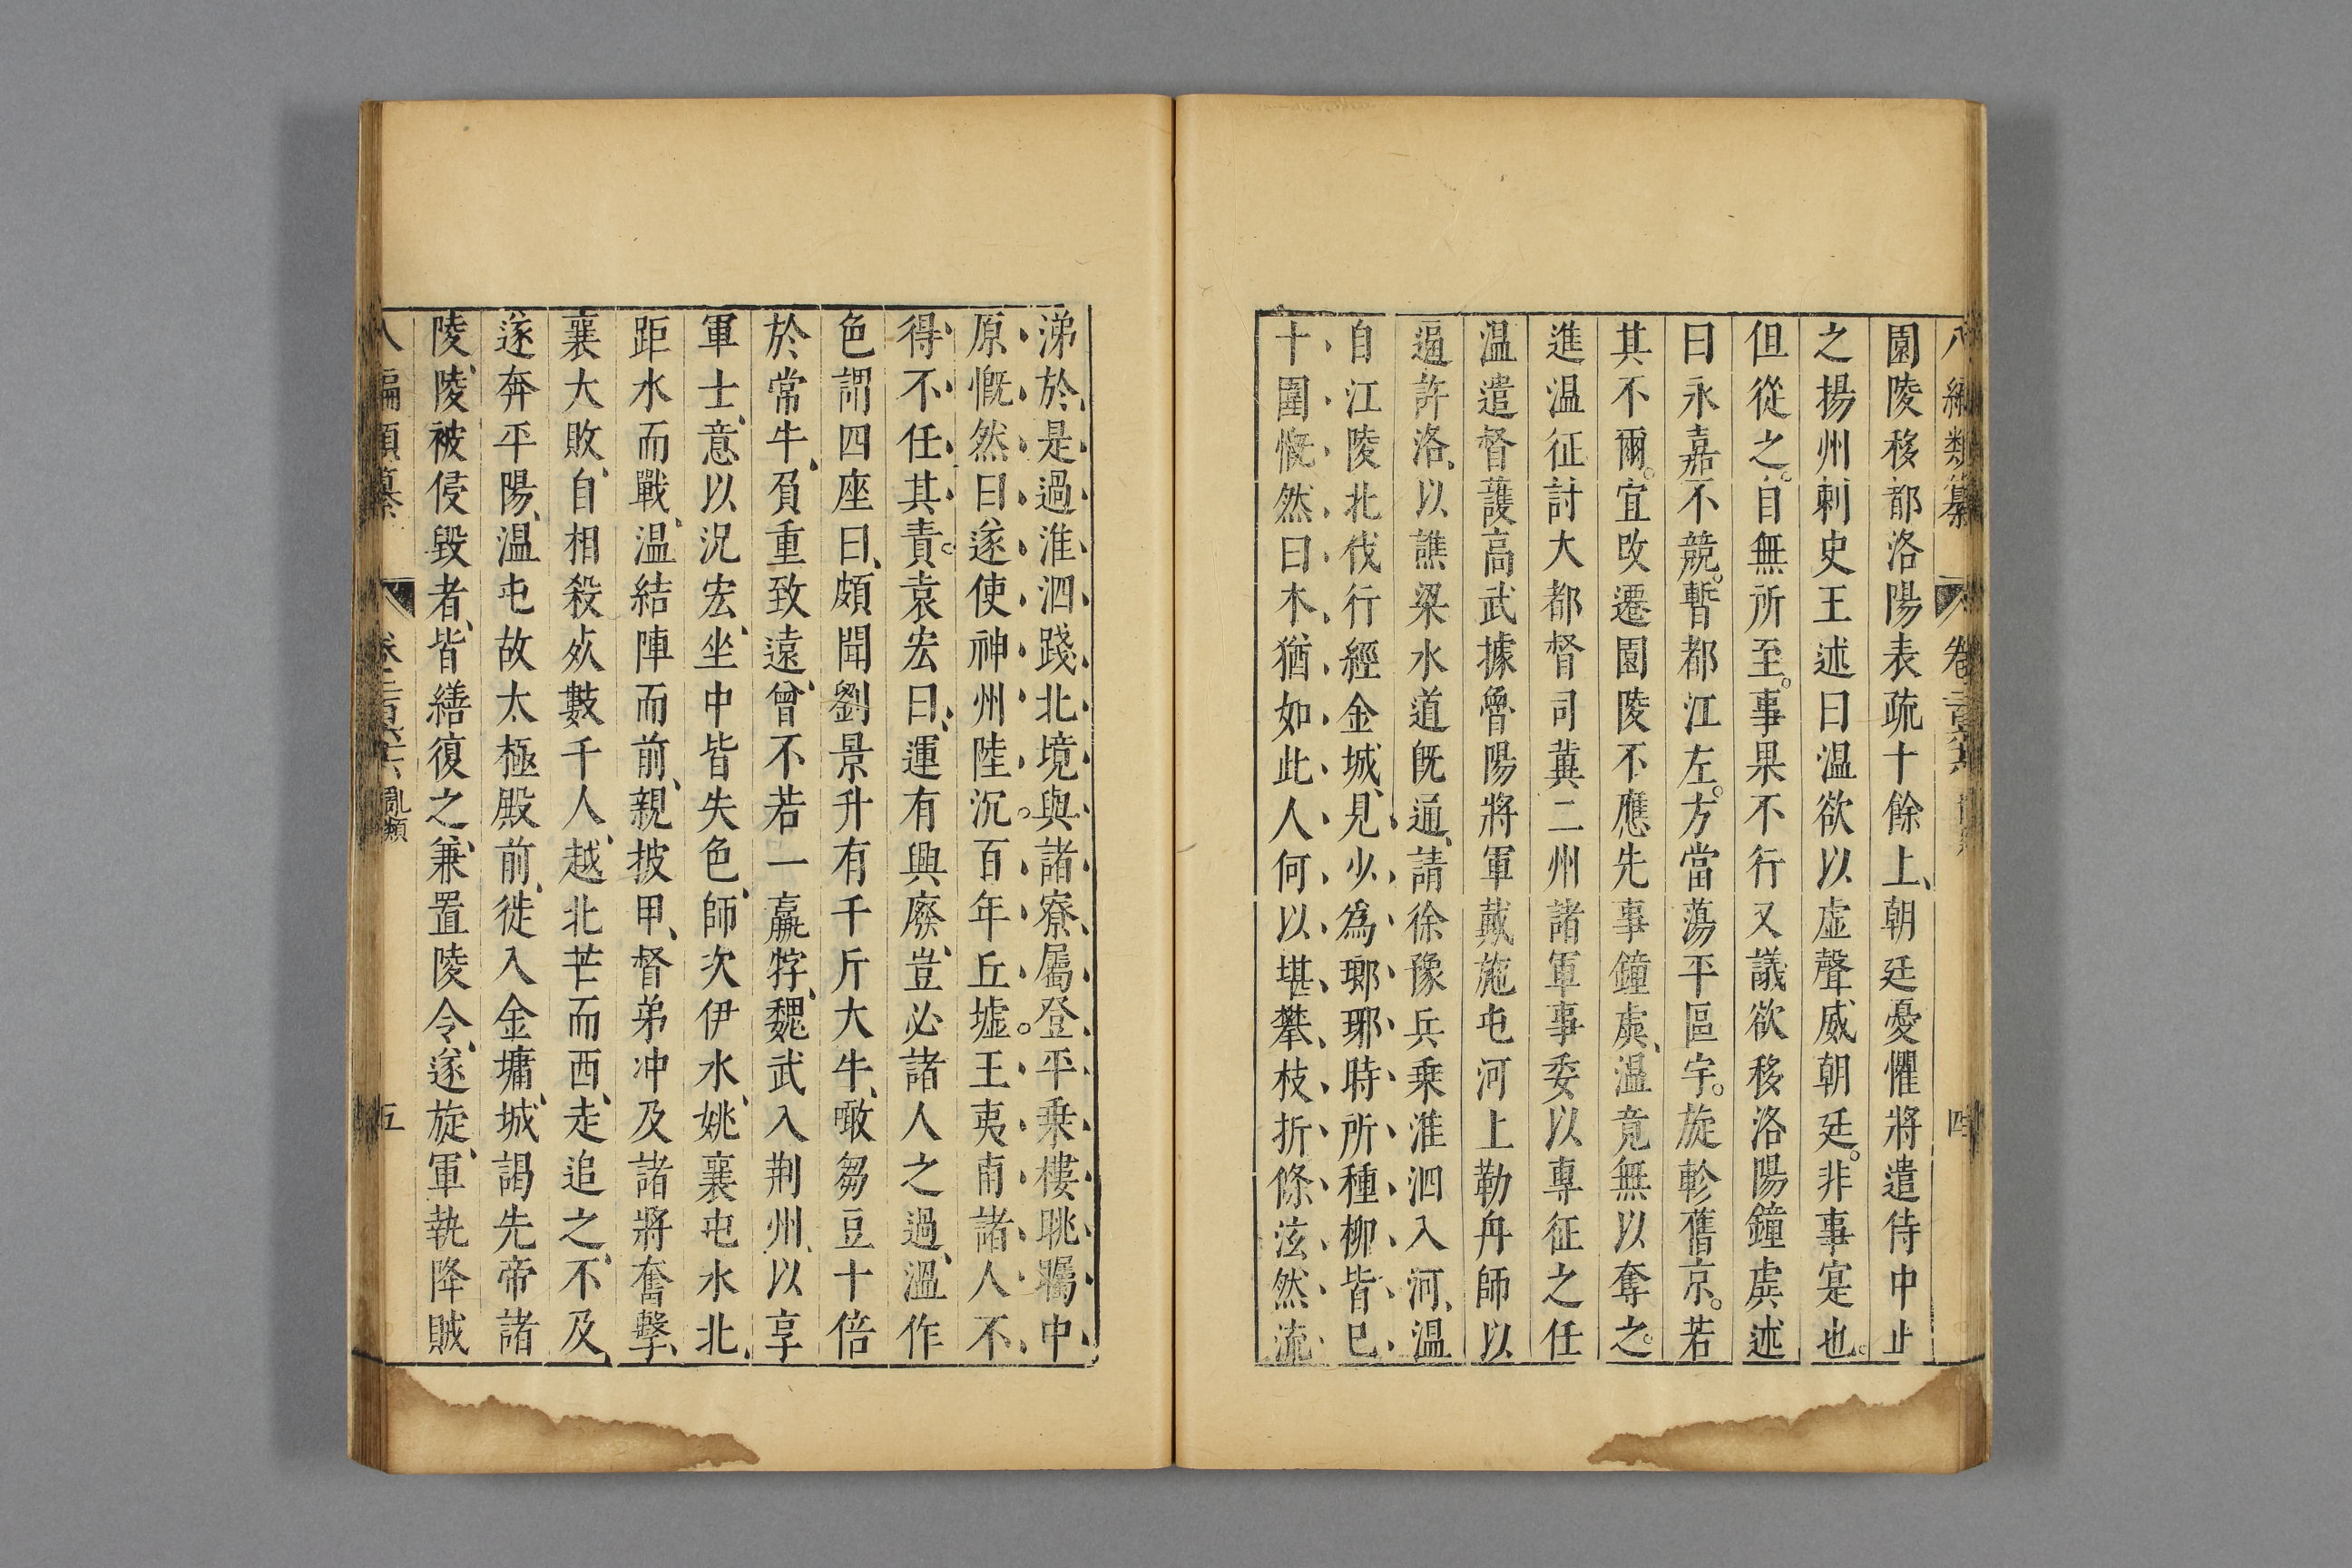 八編類纂 卷 四
園陵移都洛陽表疏十餘上、朝廷憂懼將遣侍中止
之揚州刺史王述曰温欲以虛聲威朝廷。非事寔也。
但從之。自無所至。事果不行又議欲移洛陽鐘虡述
曰永嘉不競。暫都江左。方當蕩平區宇。旋軫舊京。若
其不爾。宜改遷園陵不應先事鐘虡、温竟無以奪之。
進温征討大都督司冀二州諸軍事委以專征之任
温遣督護高武據魯陽將軍戴施屯河上勒舟師以
逼許洛、以譙梁水道旣通、請徐豫兵乘淮泗入河、温
自江陵北伐行經金城、見少爲瑯琊時所種柳皆已
十圍慨然曰木猶如此人何以堪攀枝折條泫然流
涕於是過淮泗踐北境與諸寮屬登平乘樓眺矚中
原慨然曰遂使神州陸沉。百年丘墟。王夷甫諸人不
得不任其責。袁宏曰、運有興廢、豈必諸人之過、溫作
色謂四座曰、頗聞劉景升有千斤大牛、噉芻豆十倍
於常牛、負重致遠、曾不若一羸牸、魏武入荆州、以享
軍士、意以況宏、坐中皆失色、師次伊水、姚襄屯水北、
距水而戰、温結陣而前、親披甲、督弟冲及諸將奮擊、
襄大敗、自相殺死數千人、越北芒而西、走追之、不及、
遂奔平陽、温屯故太極殿前、徙入金墉、城、謁先帝諸
陵、陵被侵毀者、皆繕復之、兼置陵令、遂旋、軍執降賊
八編類纂 卷 亂類 五